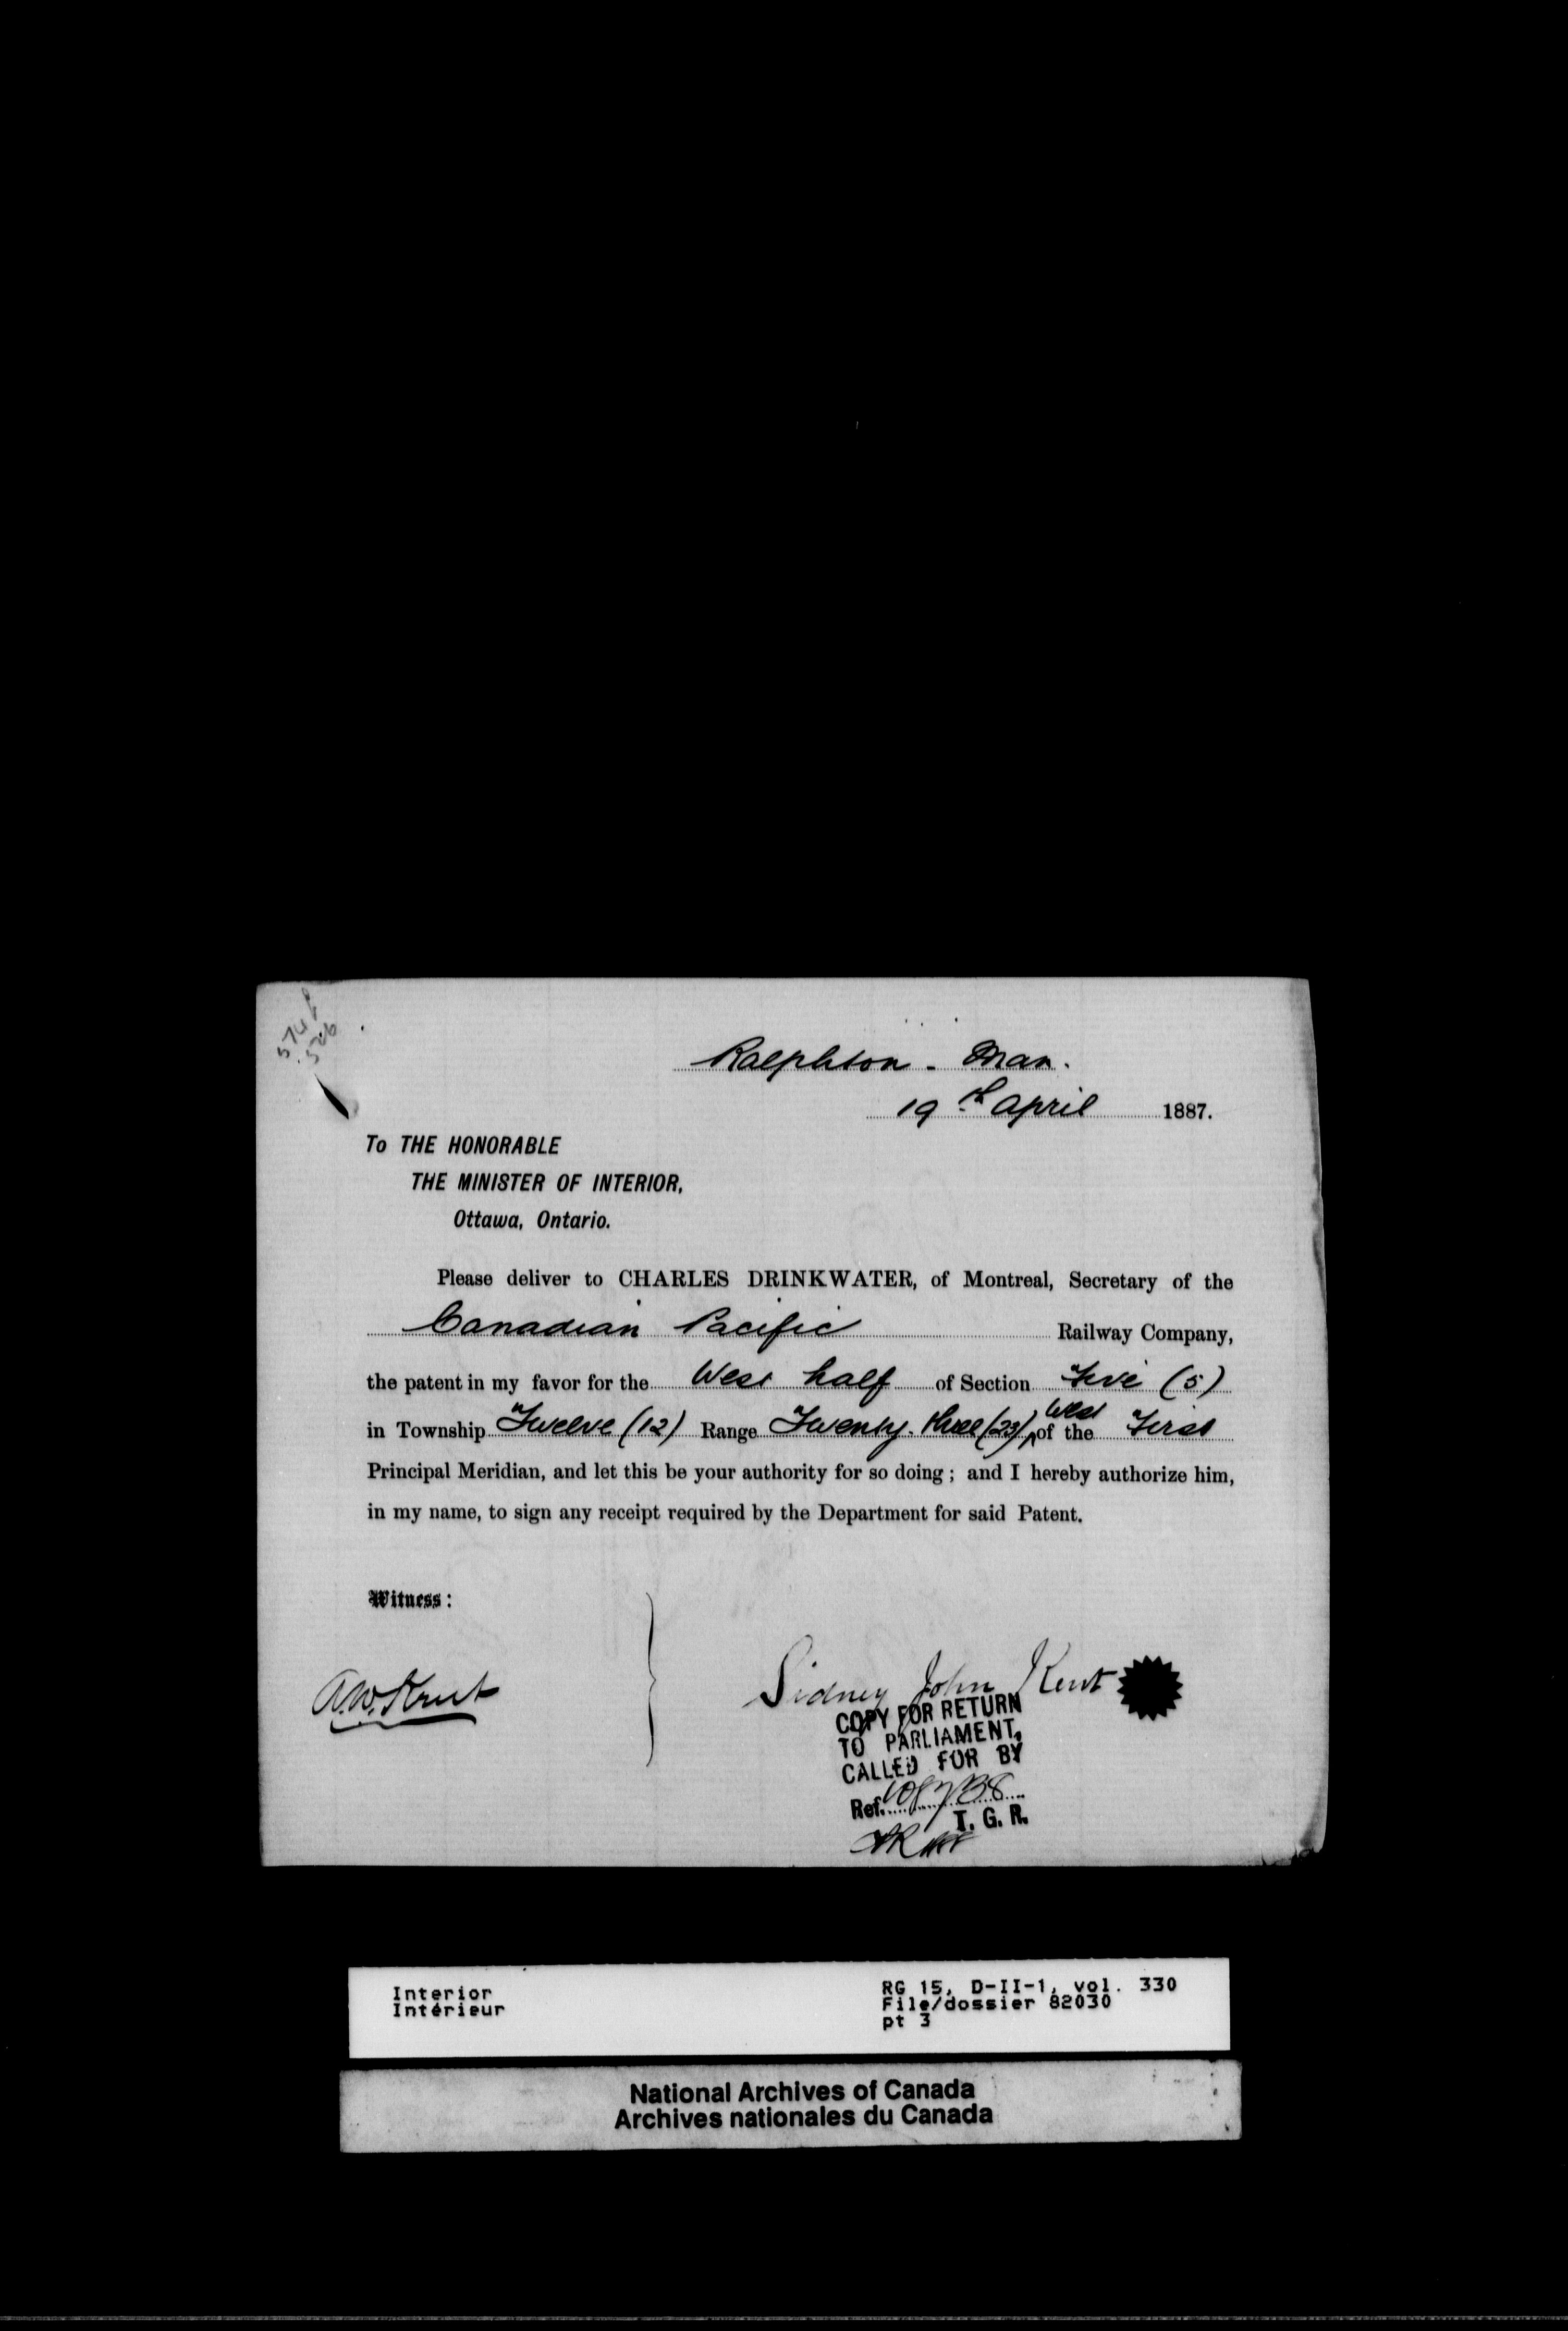 Ralphton - Man.
19th April 1887.
To THE HONORABLE
THE MINISTER OF INTERIOR,
Ottawa, Ontario.
Please deliver to CHARLES DRINKWATER, of Montreal, Secretary of the
Canadian Pacific Railway Company,
the patent in my favor for the West half of Section Five (5)
in Township Twelve (12) Range Twenty-three (23) West of the First
Principal Meridian, and let this be your authority for so doing ; and I hereby authorize him,
in my name, to sign any receipt required by the Department for said Patent.
Witness :
A.W. Kent
Sidney John Kent
COPY FOR RETURN
TO PARLIAMENT,
CALLED FOR BY
Ref.
T. G. R.
Interior
Intérieur
RG 15, D-II-1, vol. 330
File/dossier 82030
pt 3
National Archives of Canada
Archives nationales du Canada